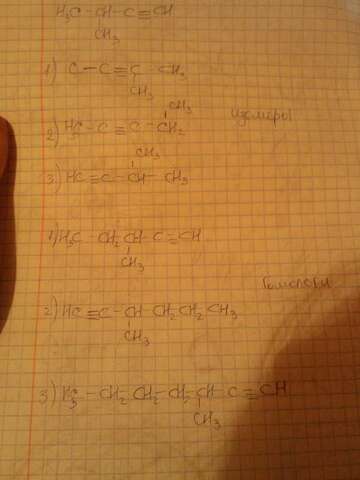 H₃C - CH - C ≡ CH
CH₃
1) C - C ≡ C - CH₃
CH₃
CH₃
2) H₃C - C ≡ C - CH₂
изомеры
CH₃
3) HC ≡ C - CH - CH₃
1) H₃C - CH₂ - CH - C ≡ CH
CH₃
Гомологи
2) HC ≡ C - CH - CH₂ CH₂ CH₃
CH₃
3) H₃C - CH₂ - CH₂ - CH₂ - CH - C ≡ CH
CH₃